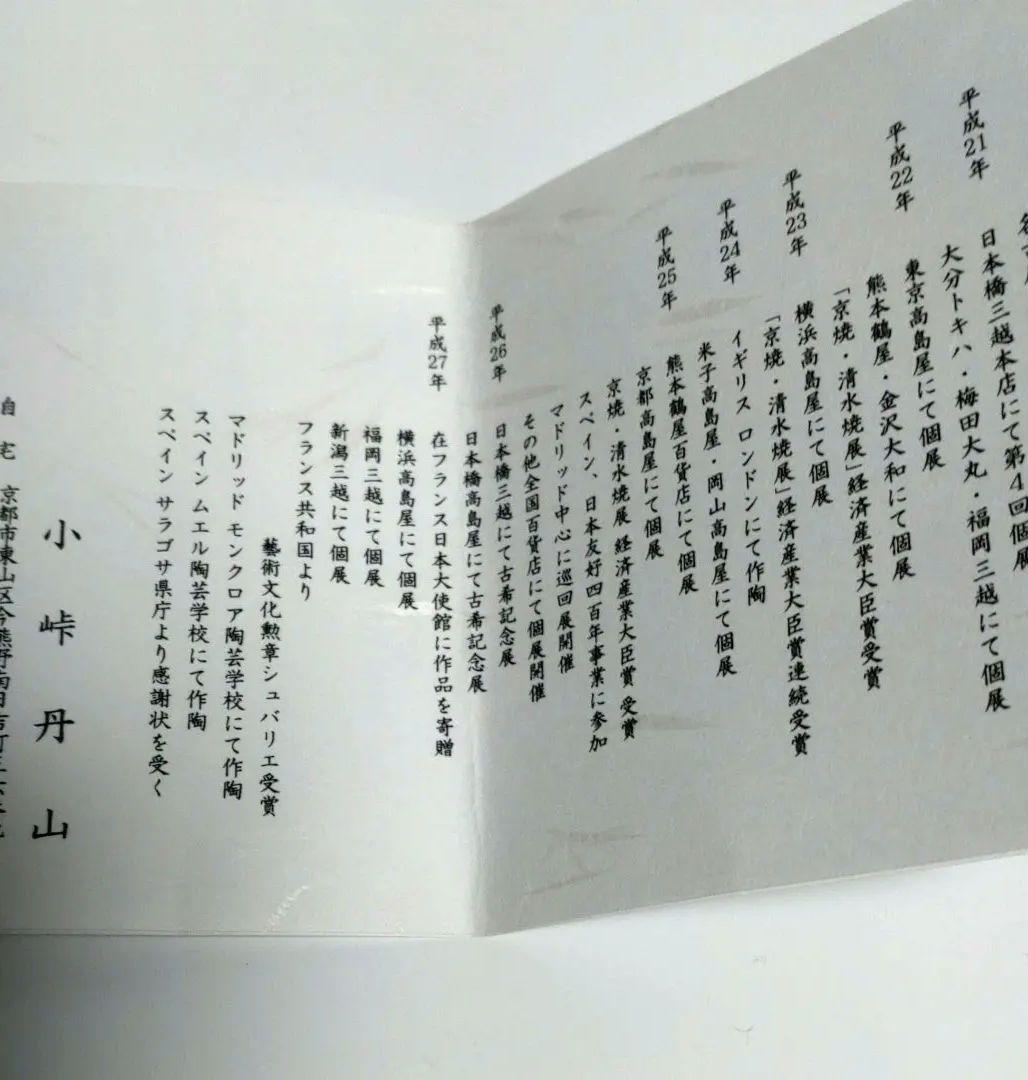 平成21年
日本橋三越本店にて第4回個展
大分トキハ・梅田大丸・福岡三越にて個展
平成22年
東京高島屋にて個展
熊本鶴屋・金沢大和にて個展
「京焼・清水焼展」経済産業大臣賞受賞
平成23年
横浜高島屋にて個展
「京焼・清水焼展」経済産業大臣賞連続受賞
平成24年
イギリス ロンドンにて作陶
米子高島屋・岡山高島屋にて個展
平成25年
熊本鶴屋百貨店にて個展
京都高島屋にて個展
京焼・清水焼展 経済産業大臣賞 受賞
スペイン、日本友好四百年事業に参加
マドリッド中心に巡回展開催
その他全国百貨店にて個展開催
平成26年
日本橋三越にて古希記念展
日本橋高島屋にて古希記念展
平成27年
在フランス日本大使館に作品を寄贈
横浜高島屋にて個展
福岡三越にて個展
新潟三越にて個展
フランス共和国より
藝術文化勲章シュバリエ受賞
マドリッド モンクロア陶芸学校にて作陶
スペイン ムエル陶芸学校にて作陶
スペイン サラゴサ県庁より感謝状を受く
小峠丹山
自宅 京都市東山区今熊野南日吉町